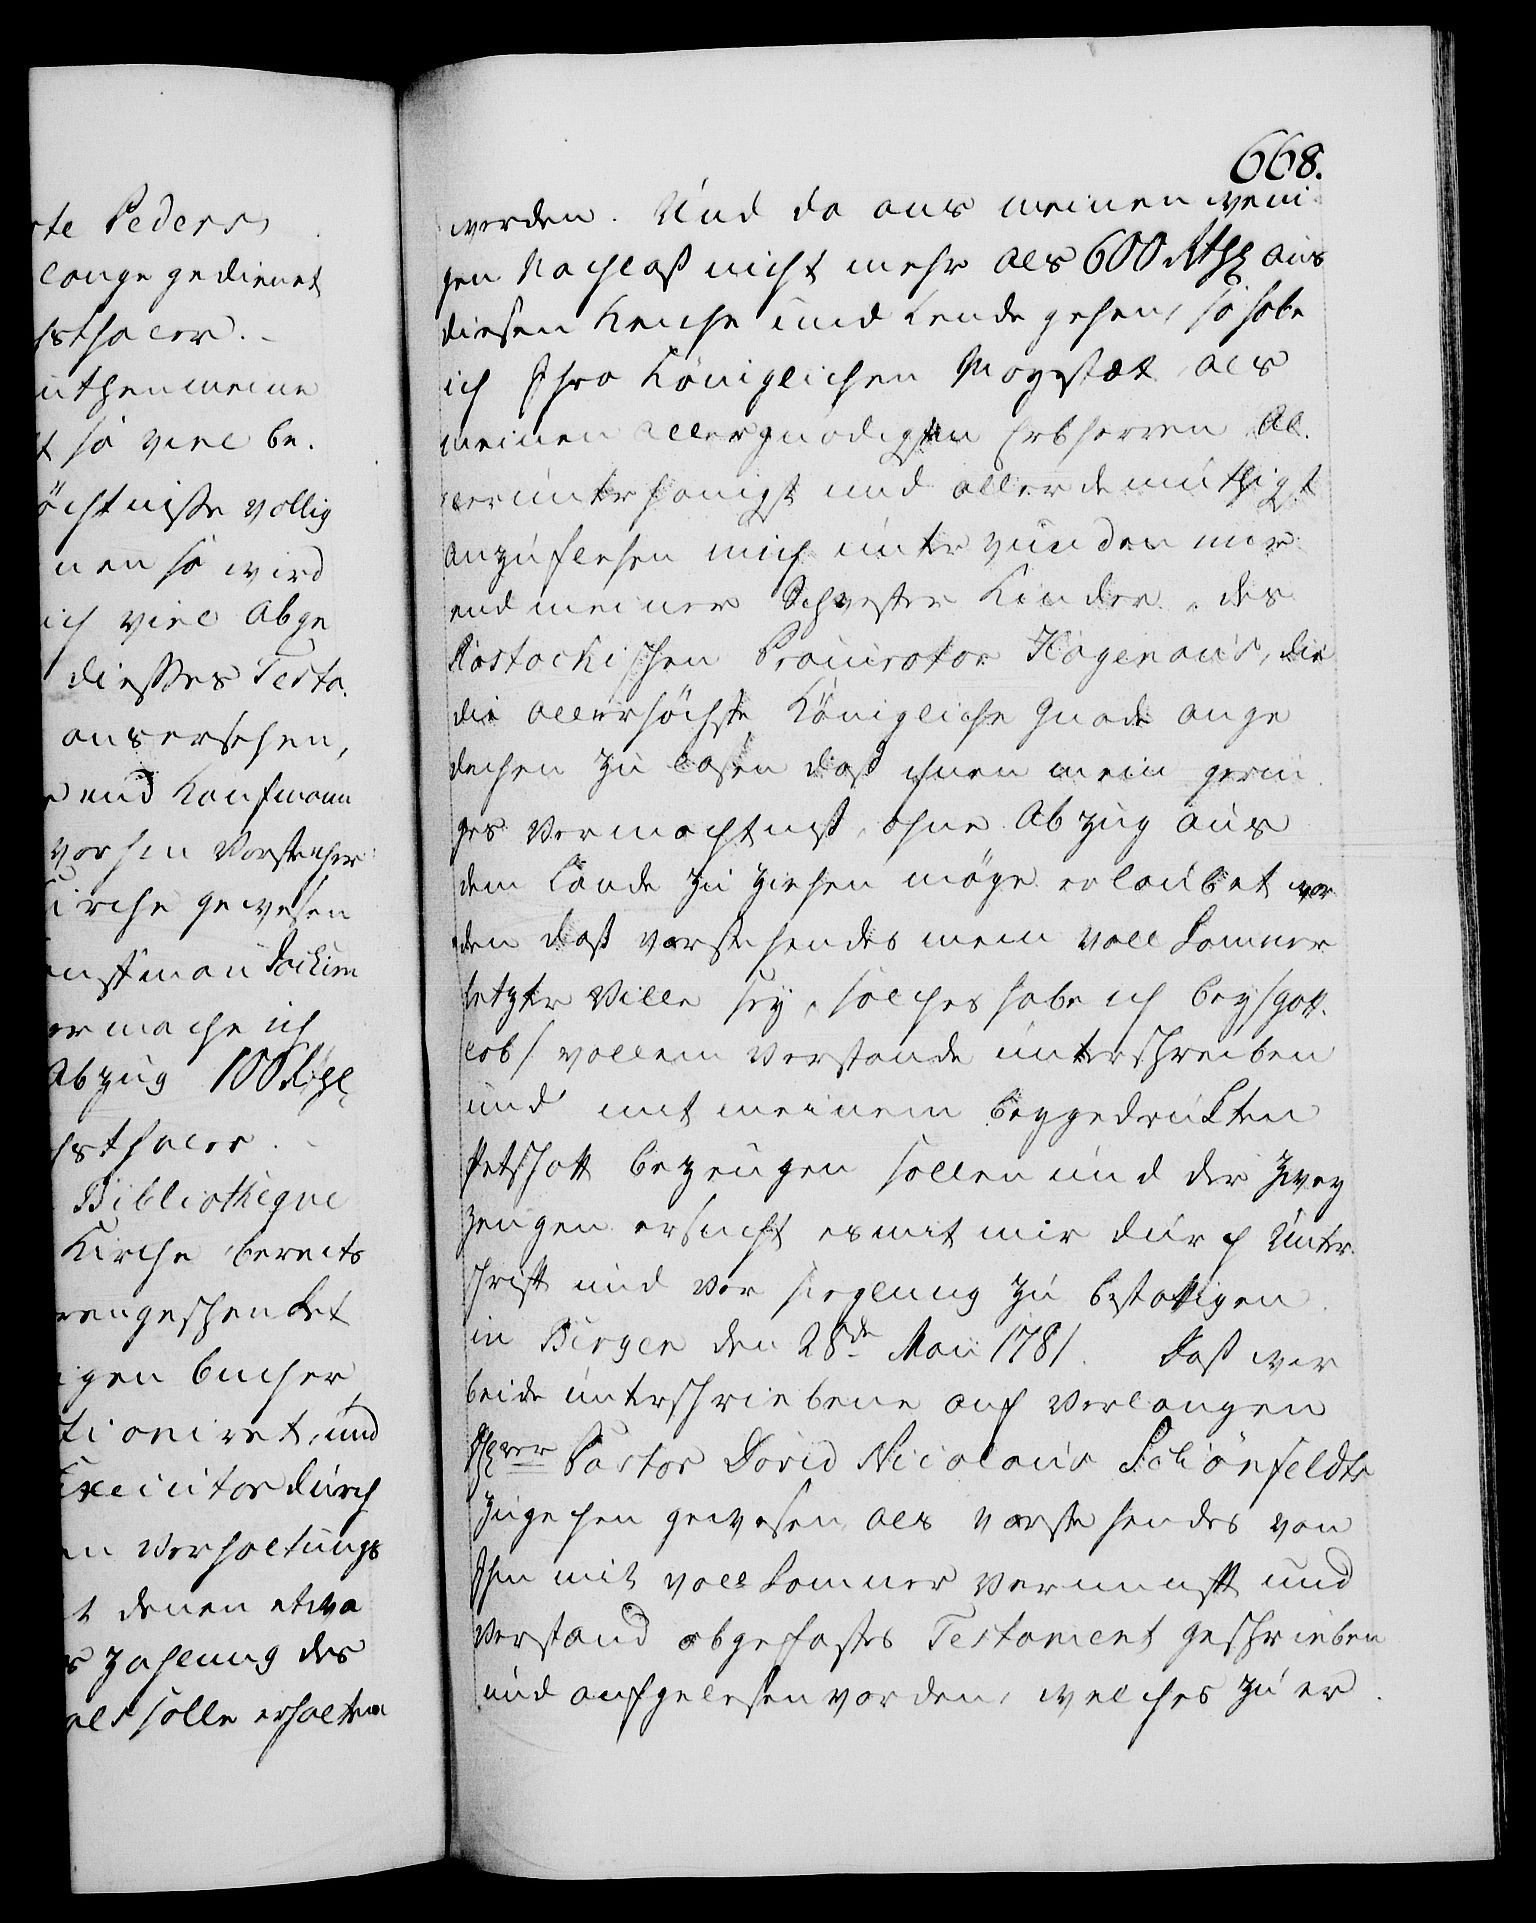 rte Peders
lange gedienet
hsthaler.
uthen meine
t so viel be.
ächtnisse vollig
nen so wird
ich viel abge
diesses Testa.
auserse­hen,
und Kaufmann
vorhin Vorsteher
Kirche gewesen
Jochim
ermache ich
Abzug 100 Rthl
hsthaler.
Bibliotheque
Kirche bereits
rengeschenket
igen bucher
tioniret, und
Executor durch
en Verhaltungs
t denen etwa
s zahlung des
als solle erhalten
668.
werden. Und da aus meinen weni
gen Nachlaß nicht mehr als 600 Rthl aus
diesen Reiche und Lande gehen, so habe
ich Ihro Königlichen Mayestæt als
meinen allergnadigsten Erbherren Al.
lerunterhanigst und allerdemuthigst
anzuflehen mich unter
und meiner Schwester Kinder, des
Rostockischen Procurator Hagenaus, die
die allerhöchste Königliche Gnade ange
deihen zu lasen daß ihnen mein gerin
ges Vermachtniß, ohne Abzug aus
dem Lande zu ziehen möge erlaubet wer
den daß vorstehendes mein vollkomner
letzter Wille sey, solches habe ich bey /Gott.
lob/ vollem Verstande unterschreiben
und mit meinem beygedrukten
Petschatt bezeugen sollen und die zwey
zeugen ersucht es mit mir durch Unter.
schrift und Versieglung zu bestattigen
in Bergen den 28de Maii 1781. Daß wir
beide unterschriebene auf Verlangen
Hrer Pastor David Nicolaus Schönfeldts
zugehen gewesen, als vorstehendes von
Ihm mit vollkomner Vernunft und
Verstand abgefastes Testament geschrieben
und aufgelesen worden, welches zu er